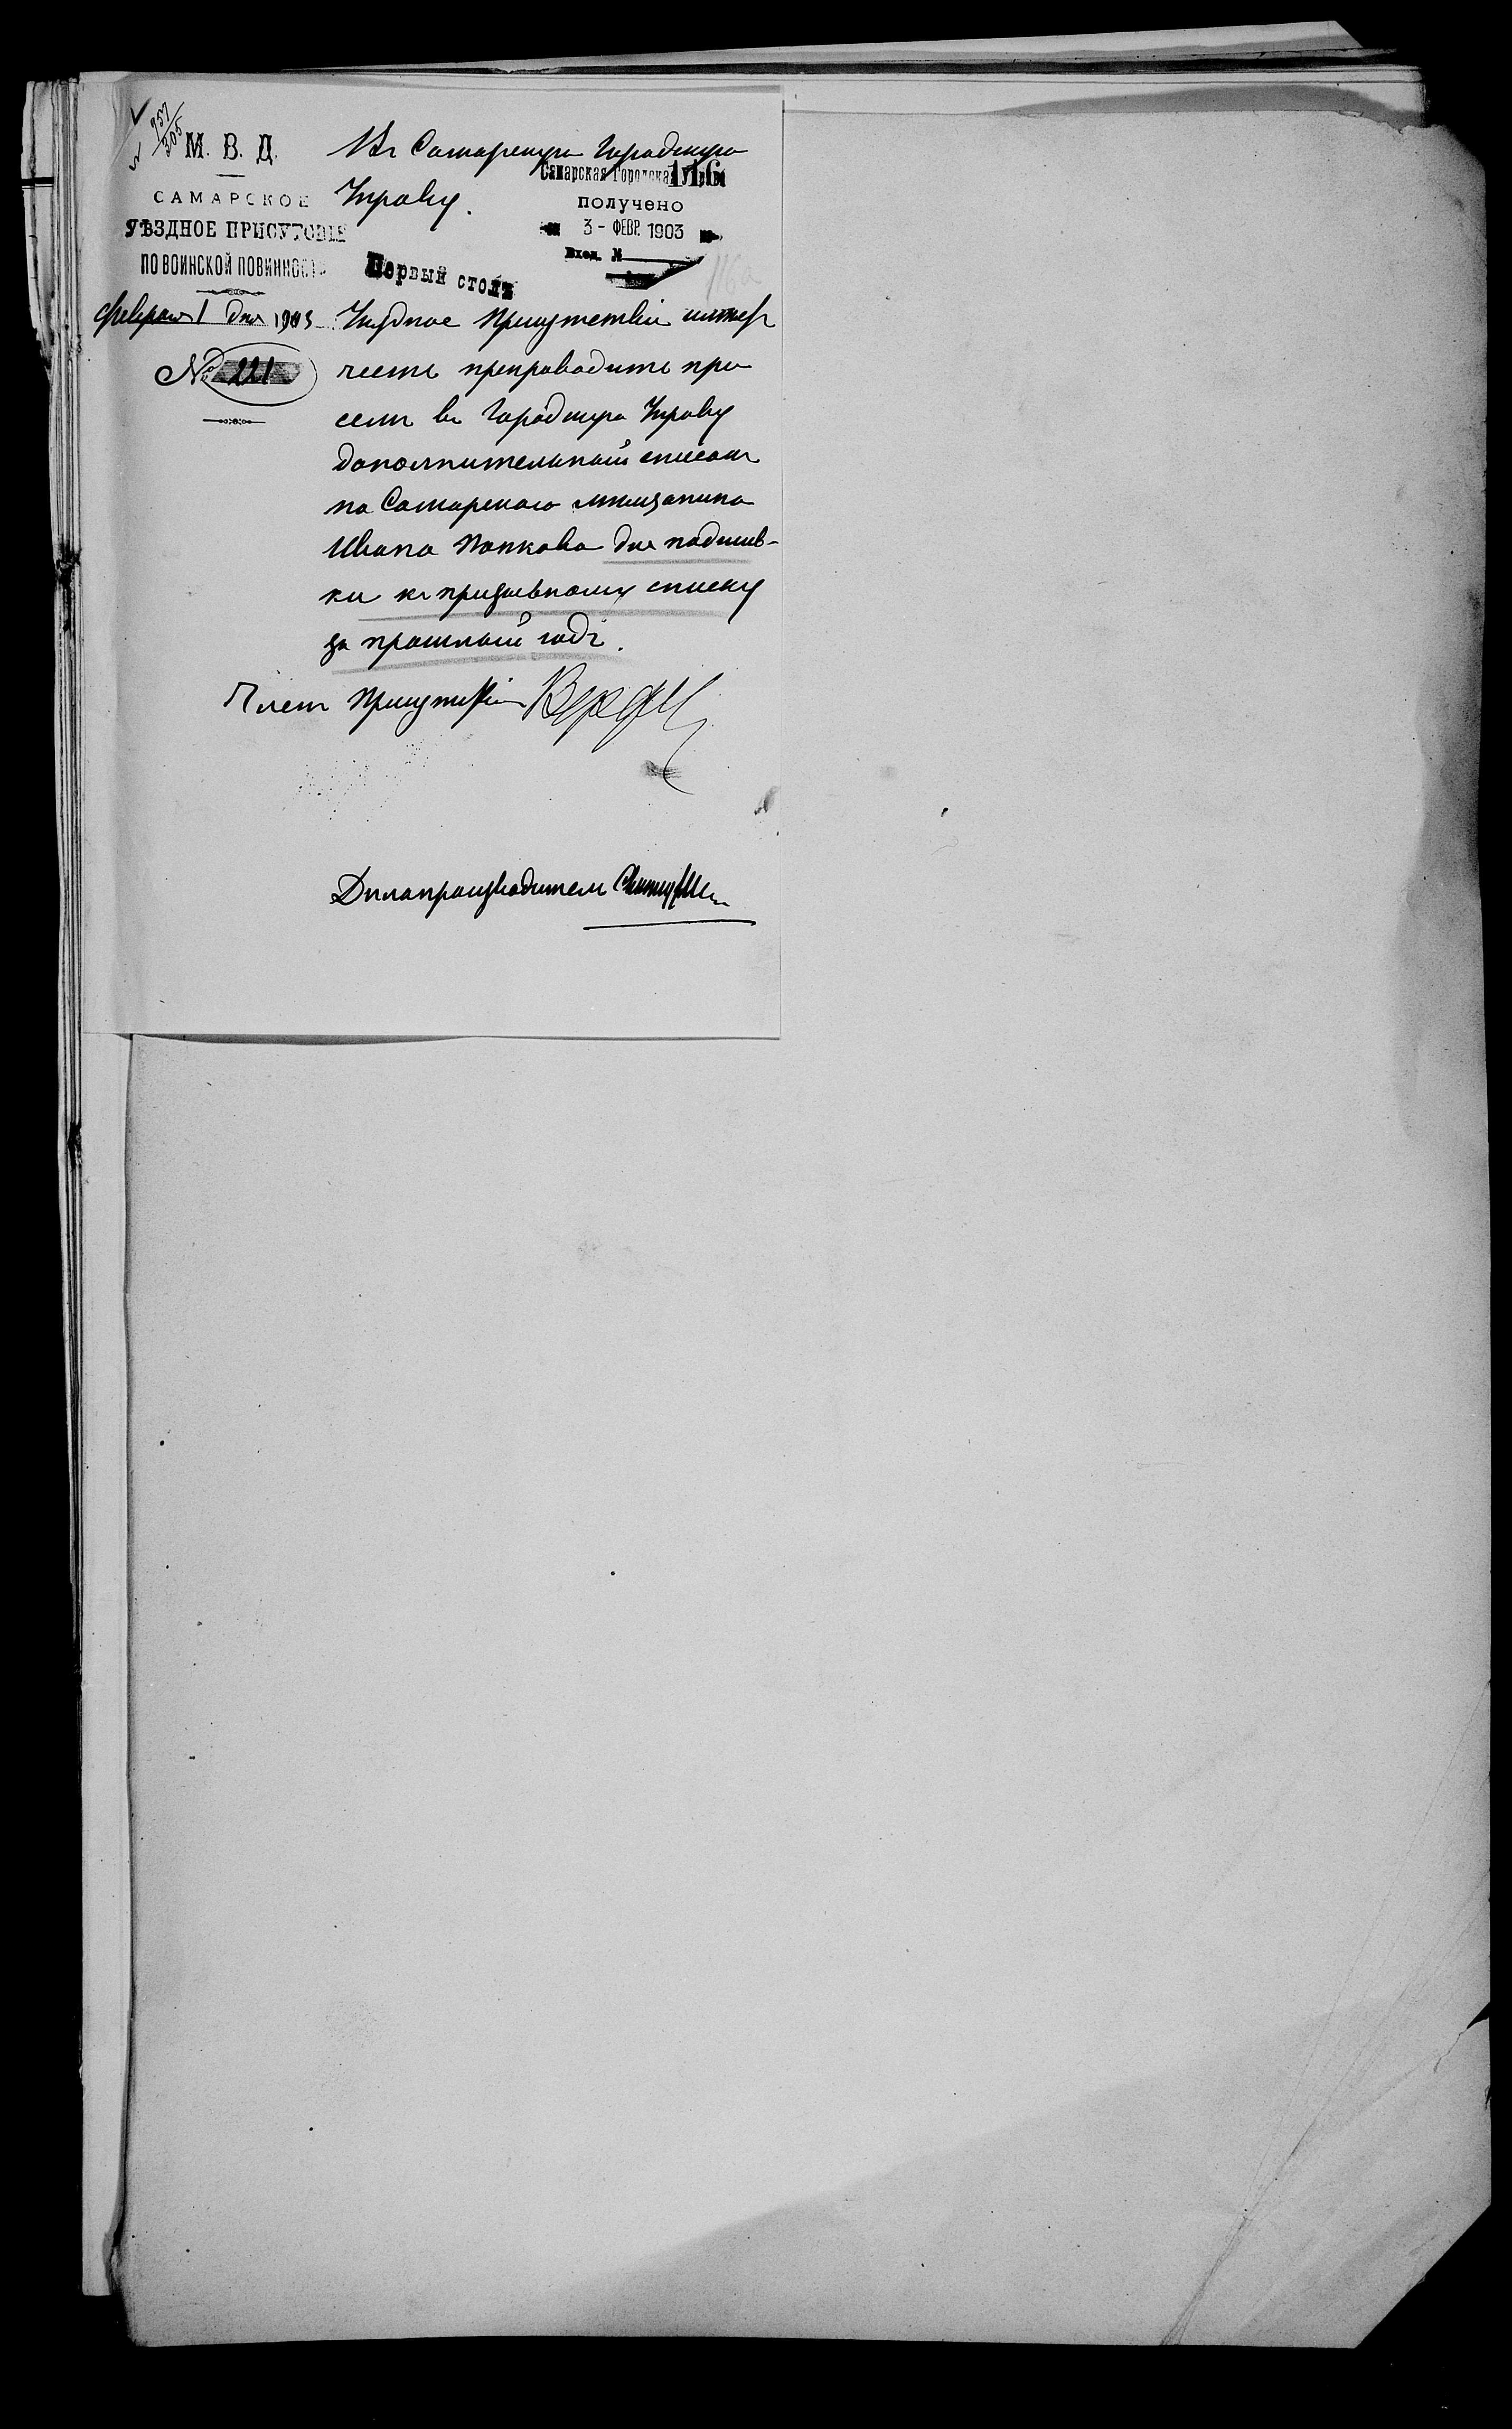 937/305
М. В. Д.
САМАРСКОЕ
УѢЗДНОЕ ПРИСУТСВІЕ
ПО ВОИНСКОЙ ПОВИННОСТИ
Февраля 1 дня 1903
№ 221
Въ Самарскую Городскую
Управу.
Самарская Городская
116
ПОЛУЧЕНО
3 - ФЕВР. 1903
Вход. №
116а
Первый столъ
Уѣздное Присутствіе имѣетъ
честь препроводить при
семъ въ Городскую Управу
дополнительный списокъ
на Самарскаго мѣщанина
Ивана Попкова для подшив-
ки къ призывному списку
за прошлый годъ.
Членъ Присутствія
Дѣлопроизводитель